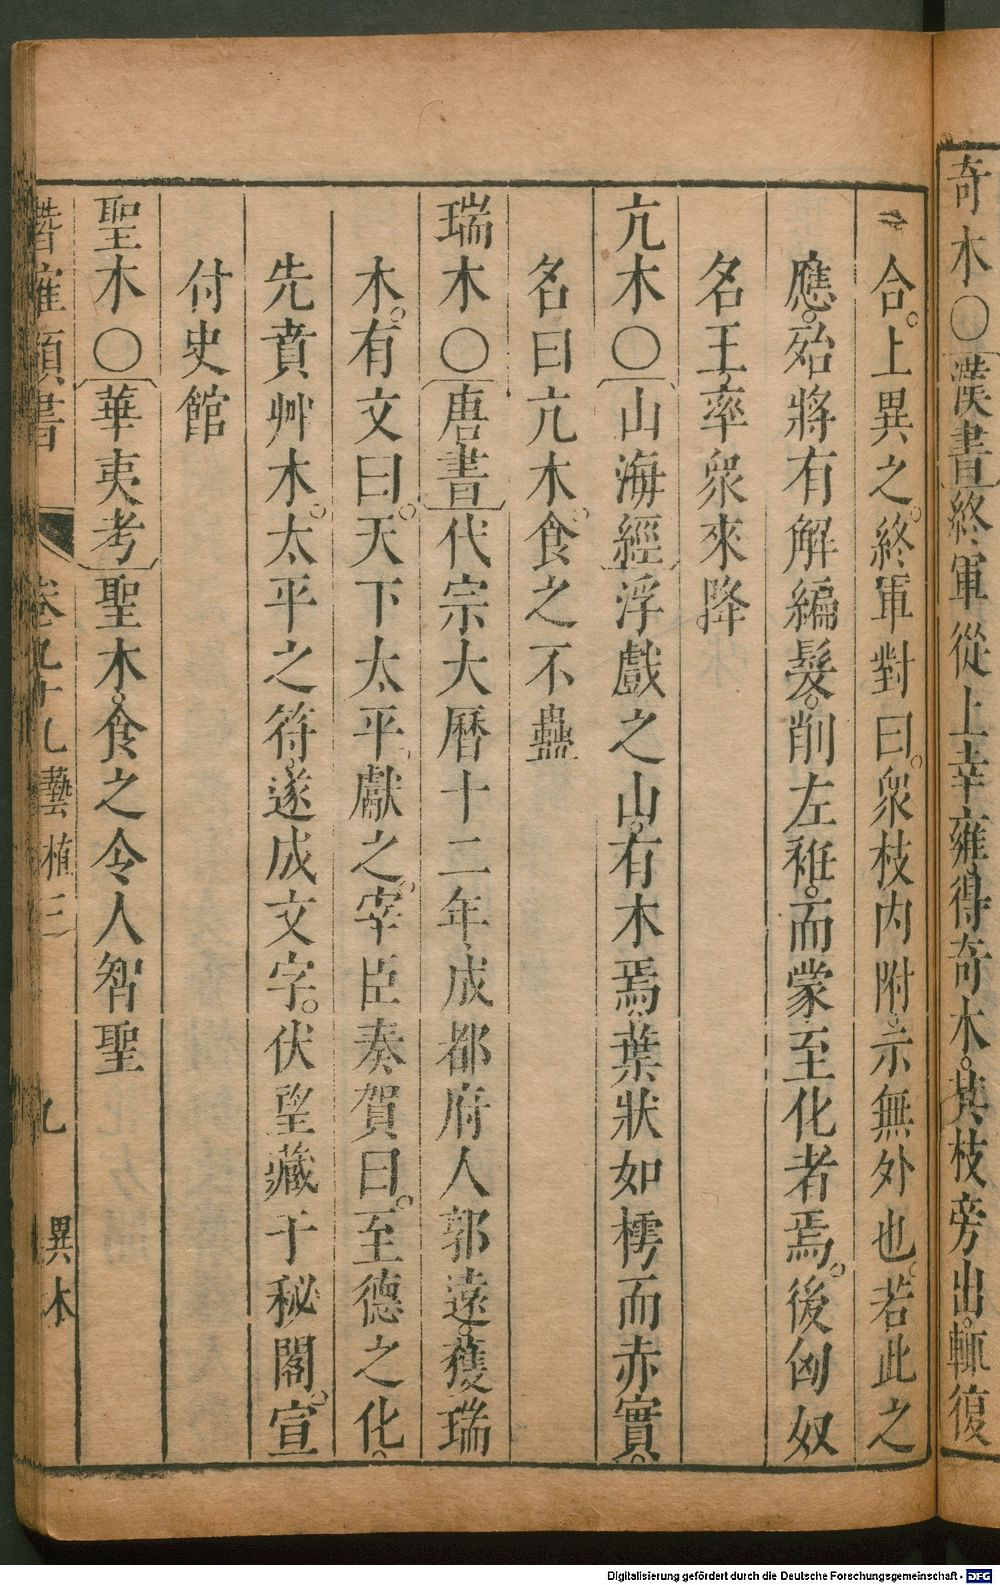 奇木〇漢書終軍從上幸雍得奇木。其枝旁出。輒復
合。上異之。終軍對曰。衆枝内附示無外也。若此之
應。殆將有解編髮。削左袵。而蒙至化者焉。後匈奴
名王率衆來降
亢木〇山海經浮戲之山。有木焉。葉狀如樗而赤實。
名曰亢木。食之不蠱
瑞木〇唐書代宗大曆十二年。成都府人郭遠。獲瑞
木。有文曰。天下太平。獻之。宰臣奏賀曰。至德之化。
先賁艸木。太平之符。遂成文字。伏望藏于秘閣。宣
付史館
聖木〇華夷考聖木。食之令人智聖
潛確類書 卷九十九藝植三 九 異木
Digitalisierung gefördert durch die Deutsche Forschungsgemeinschaft - DFG